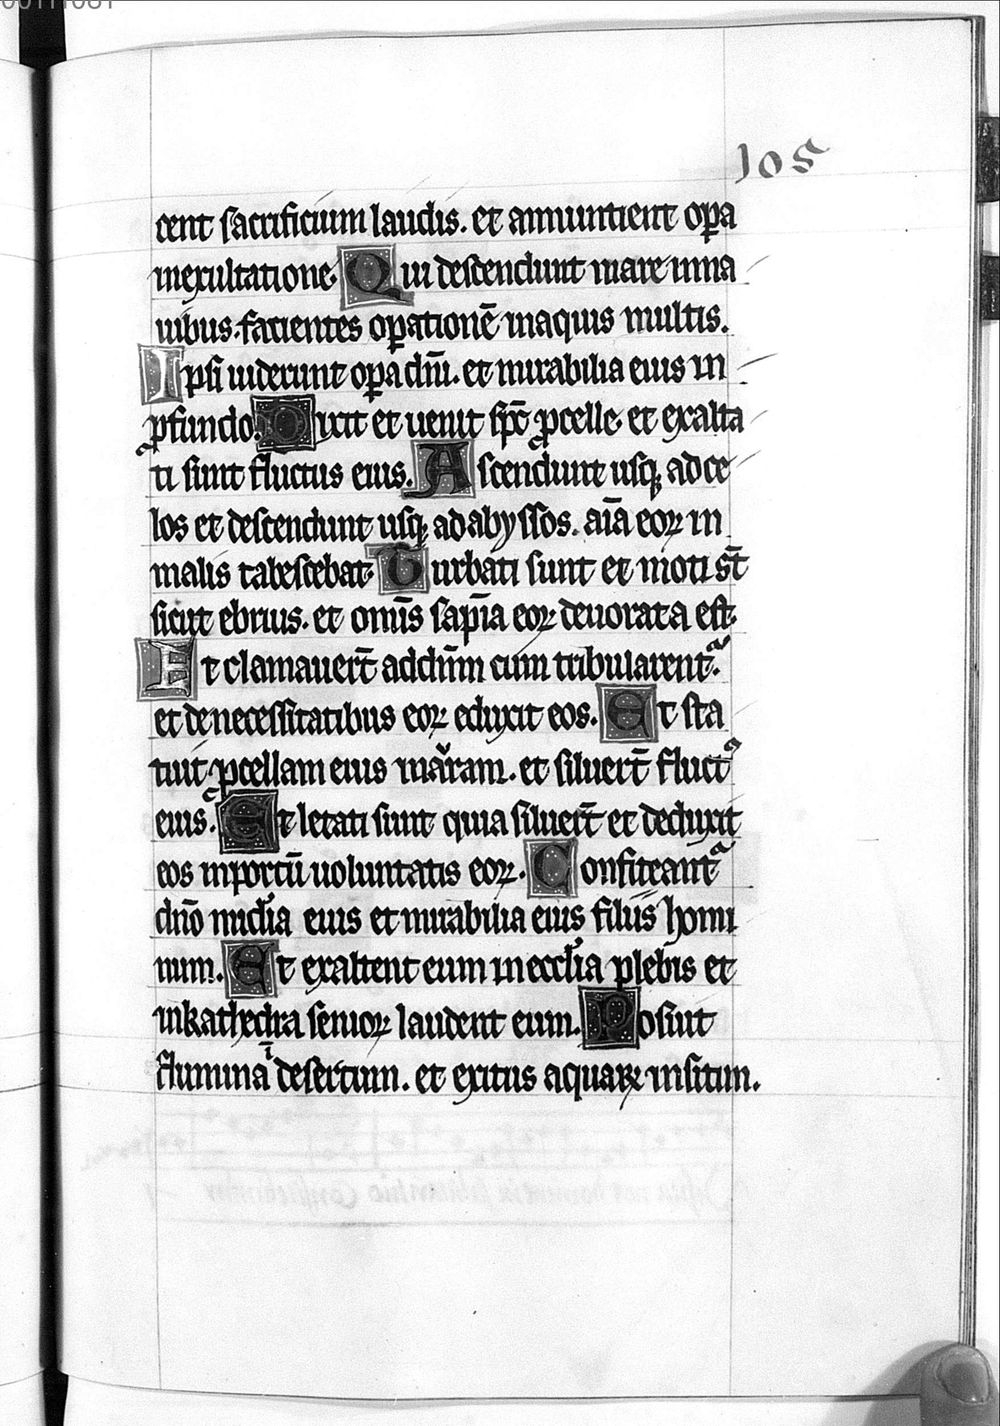 105
cent sacrificium laudis. et annuntient opa
inexultatione. Qui descendunt mare inna
uibus. facientes opationē inaquis multis.
Ipsi uiderunt opa dnī. et mirabilia eius in
pfundo. Dixit et uenit spc pcelle. et exalta
ti sunt fluctus eius. Ascendunt usq; ad ce
los et descendunt usq; ad abyssos. aīa eoꝝ in
malis tabescebat. Turbati sunt et moti sт̄
sicut ebrius. et omīs sapīa eoꝝ deuorata est.
Et clamauerт̄ addnm̄ cum tribularent.
et denecessitatibus eoꝝ eduxit eos. Et sta
tuit pcellam eius inauram. et siluerт̄ fluct
eius. Et letati sunt quia siluerт̄ et deduxit
eos inportū uoluntatis eoꝝ. Confiteant
dnō miclia eius et mirabilia eius filiis homi
num. Et exaltent eum in ecclia plebis et
inkathedra senioꝝ laudent eum. Posuit
flumina ī desertum. et exitus aquaꝝ insitim.